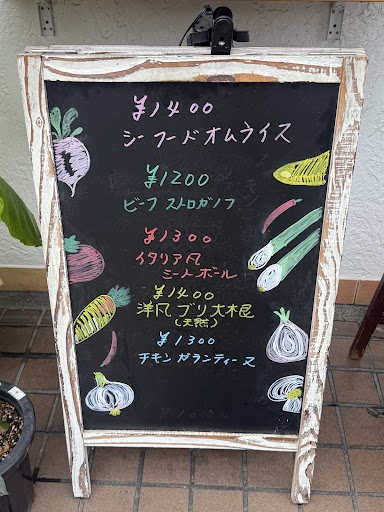 ¥1400
シーフードオムライス
¥1200
ビーフ ストロガノフ
¥1300
イタリア風
ミートボール
¥1400
洋風 ブリ大根
(天然)
¥1300
チキン ガランティーヌ